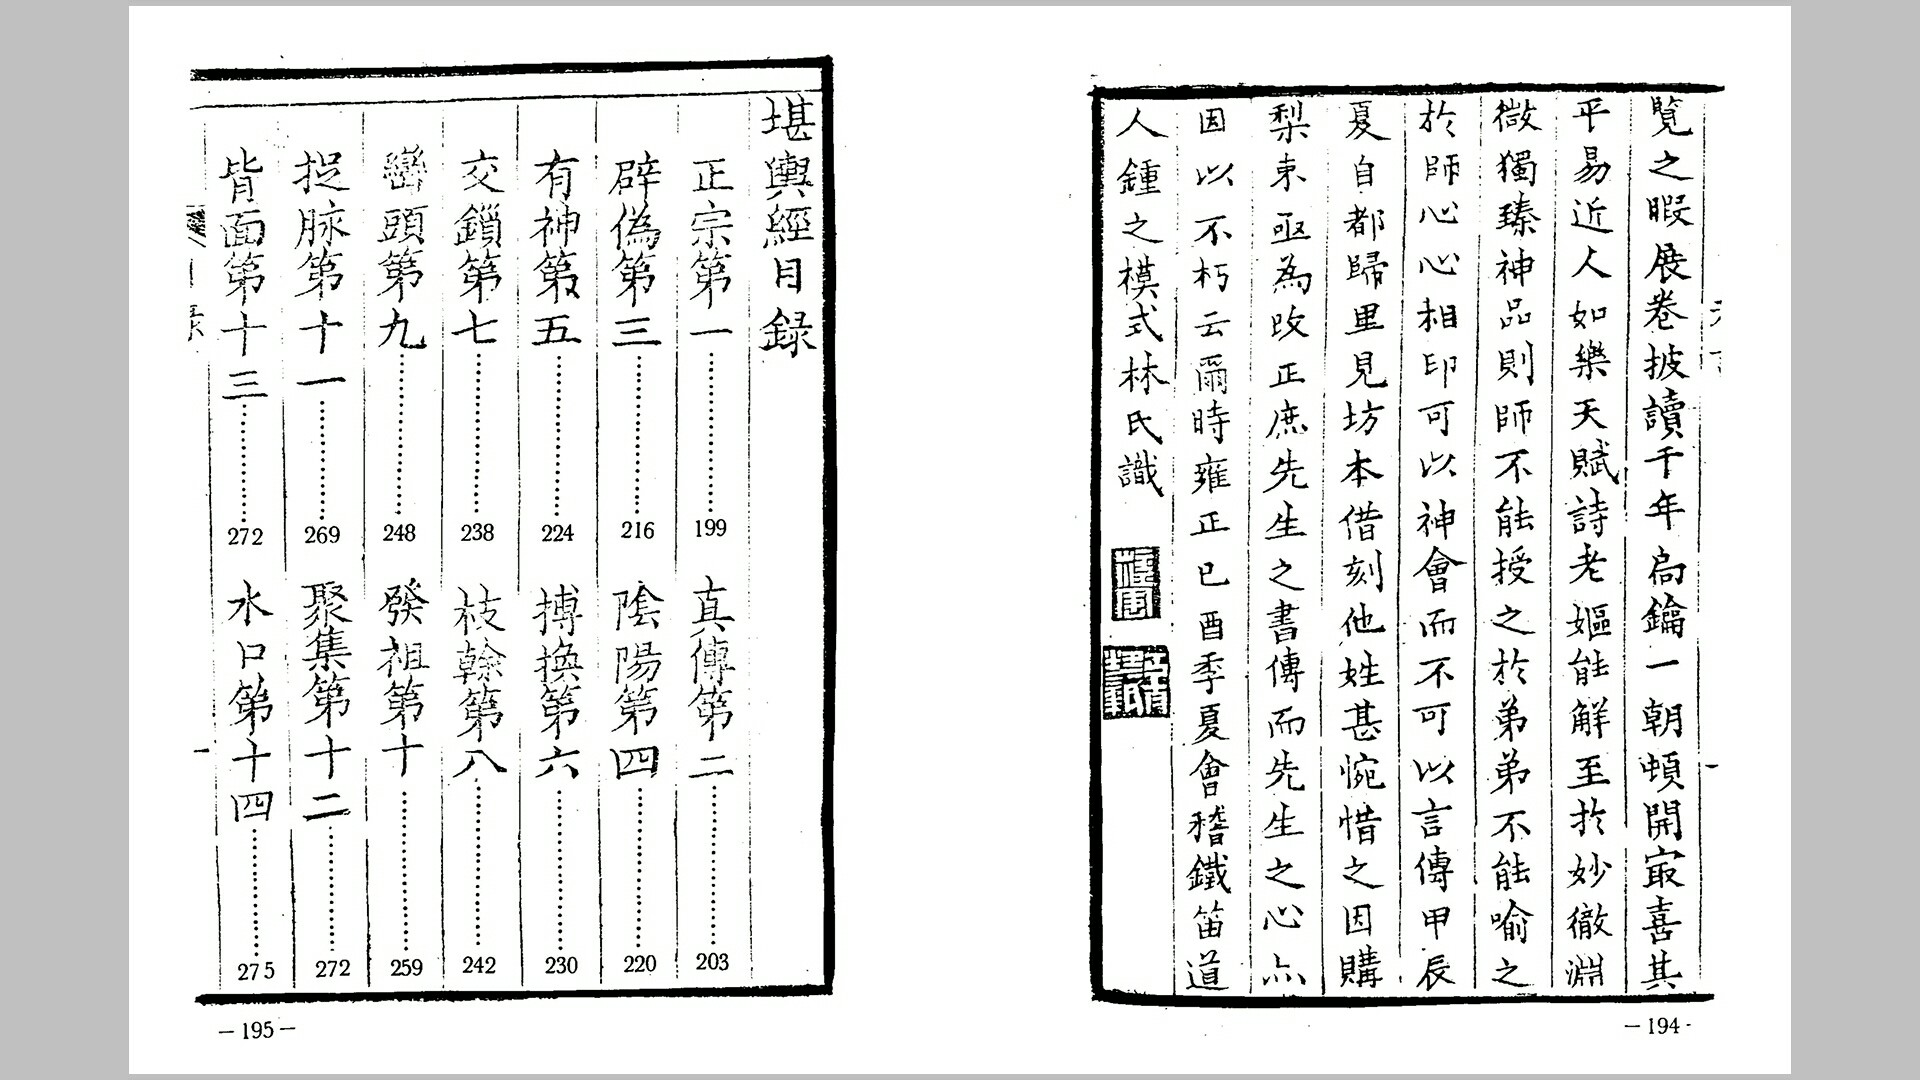 覧之暇展卷披讀千年扃鑰一朝頓開冣喜其
平易近人如樂天賦詩老嫗能解至扵妙徹淵
微獨臻神品則師不能授之扵弟弟不能喻之
扵師心心相印可以神會而不可以言傳甲辰
夏自都歸里見坊本借刻他姓甚惋惜之因購
梨東亟為改正庶先生之書傳而先生之心亦
因以不朽云爾時雍正已酉季夏會稽鐵笛道
人鍾之模式林氏識
一
－194-
堪輿經目録
正宗第一 199 真傳第二 203
辟偽第三 216 陰陽第四 220
有神第五 224 搏換第六 230
交鎖第七 238 枝榦第八 242
巒頭第九 248 發祖第十 259
捉脉第十一 269 聚集第十二 272
背面第十三 272 水口第十四 275
一
－195－